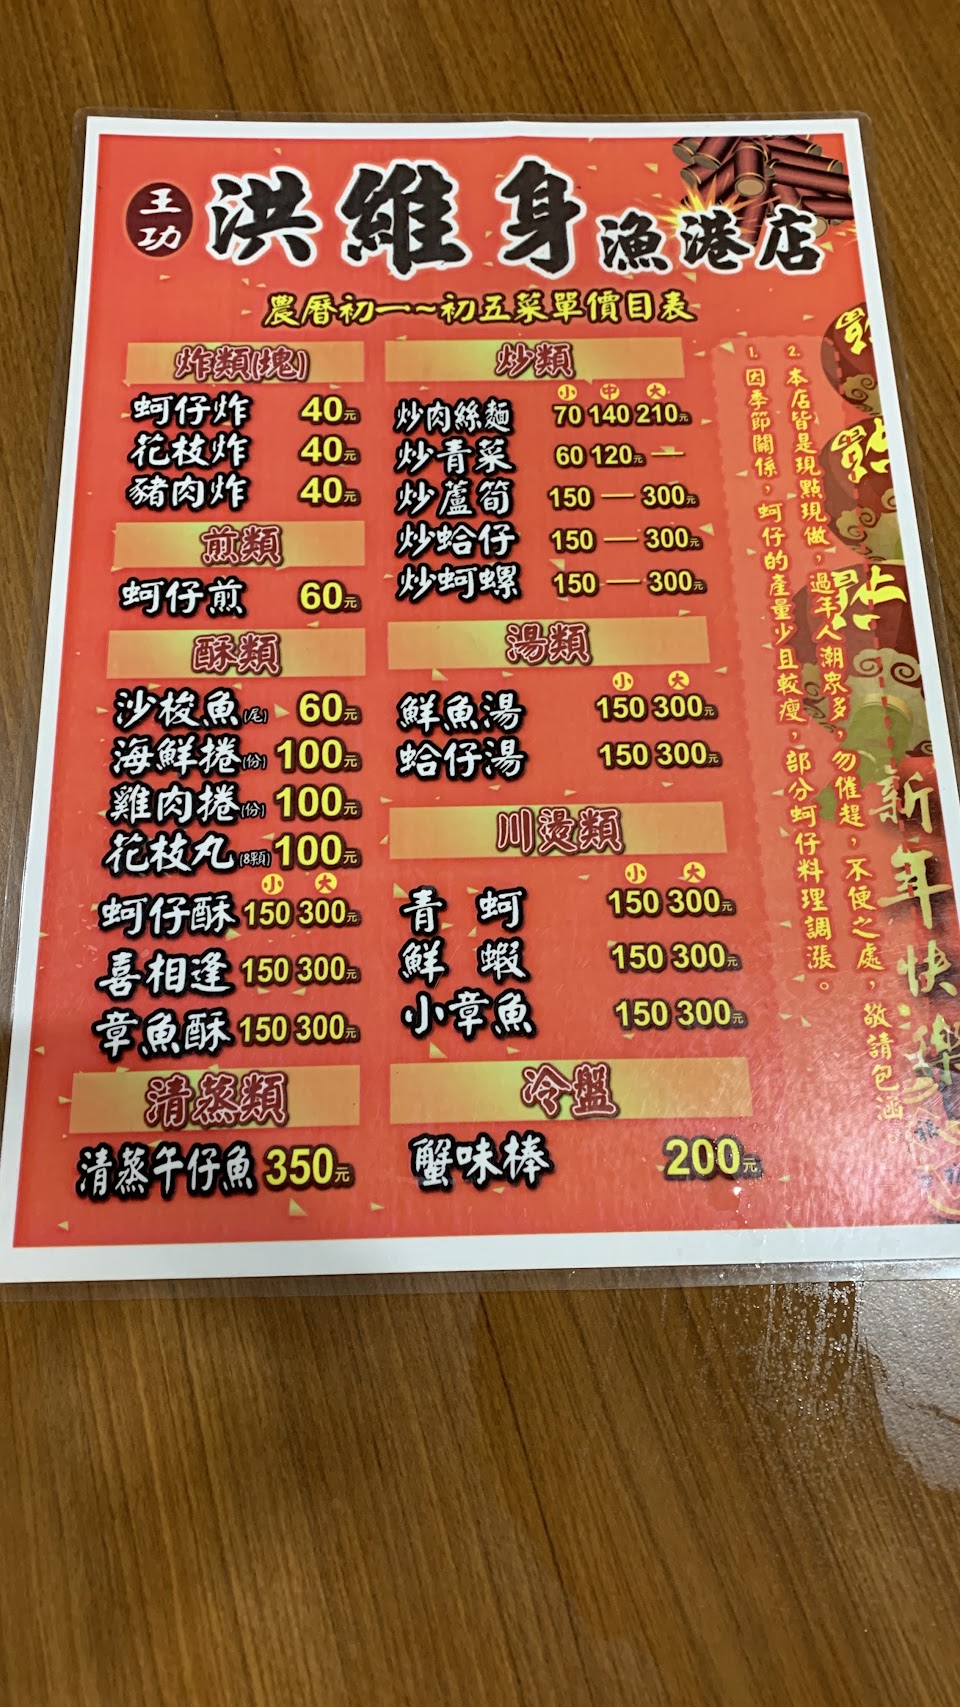 王功
洪維身漁港店
農曆初一~初五菜單價目表
炸類(塊)
蚵仔炸 40元
花枝炸 40元
豬肉炸 40元
煎類
蚵仔煎 60元
酥類
沙梭魚(尾) 60元
海鮮捲(份) 100元
雞肉捲(份) 100元
花枝丸(8顆) 100元
小 大
蚵仔酥 150 300元
喜相逢 150 300元
章魚酥 150 300元
清蒸類
清蒸午仔魚 350元
炒類
小 中 大
炒肉絲麵 70 140 210元
炒青菜 60 120元 —
炒蘆筍 150 — 300元
炒蛤仔 150 — 300元
炒蚵螺 150 — 300元
湯類
小 大
鮮魚湯 150 300元
蛤仔湯 150 300元
川燙類
小 大
青蚵 150 300元
鮮蝦 150 300元
小章魚 150 300元
冷盤
蟹味棒 200元
1. 因季節關係，蚵仔的產量少且較瘦，部分蚵仔料理調漲。
2. 本店皆是現點現做，過年人潮眾多，勿催趕，不便之處，敬請包涵。
新年快樂